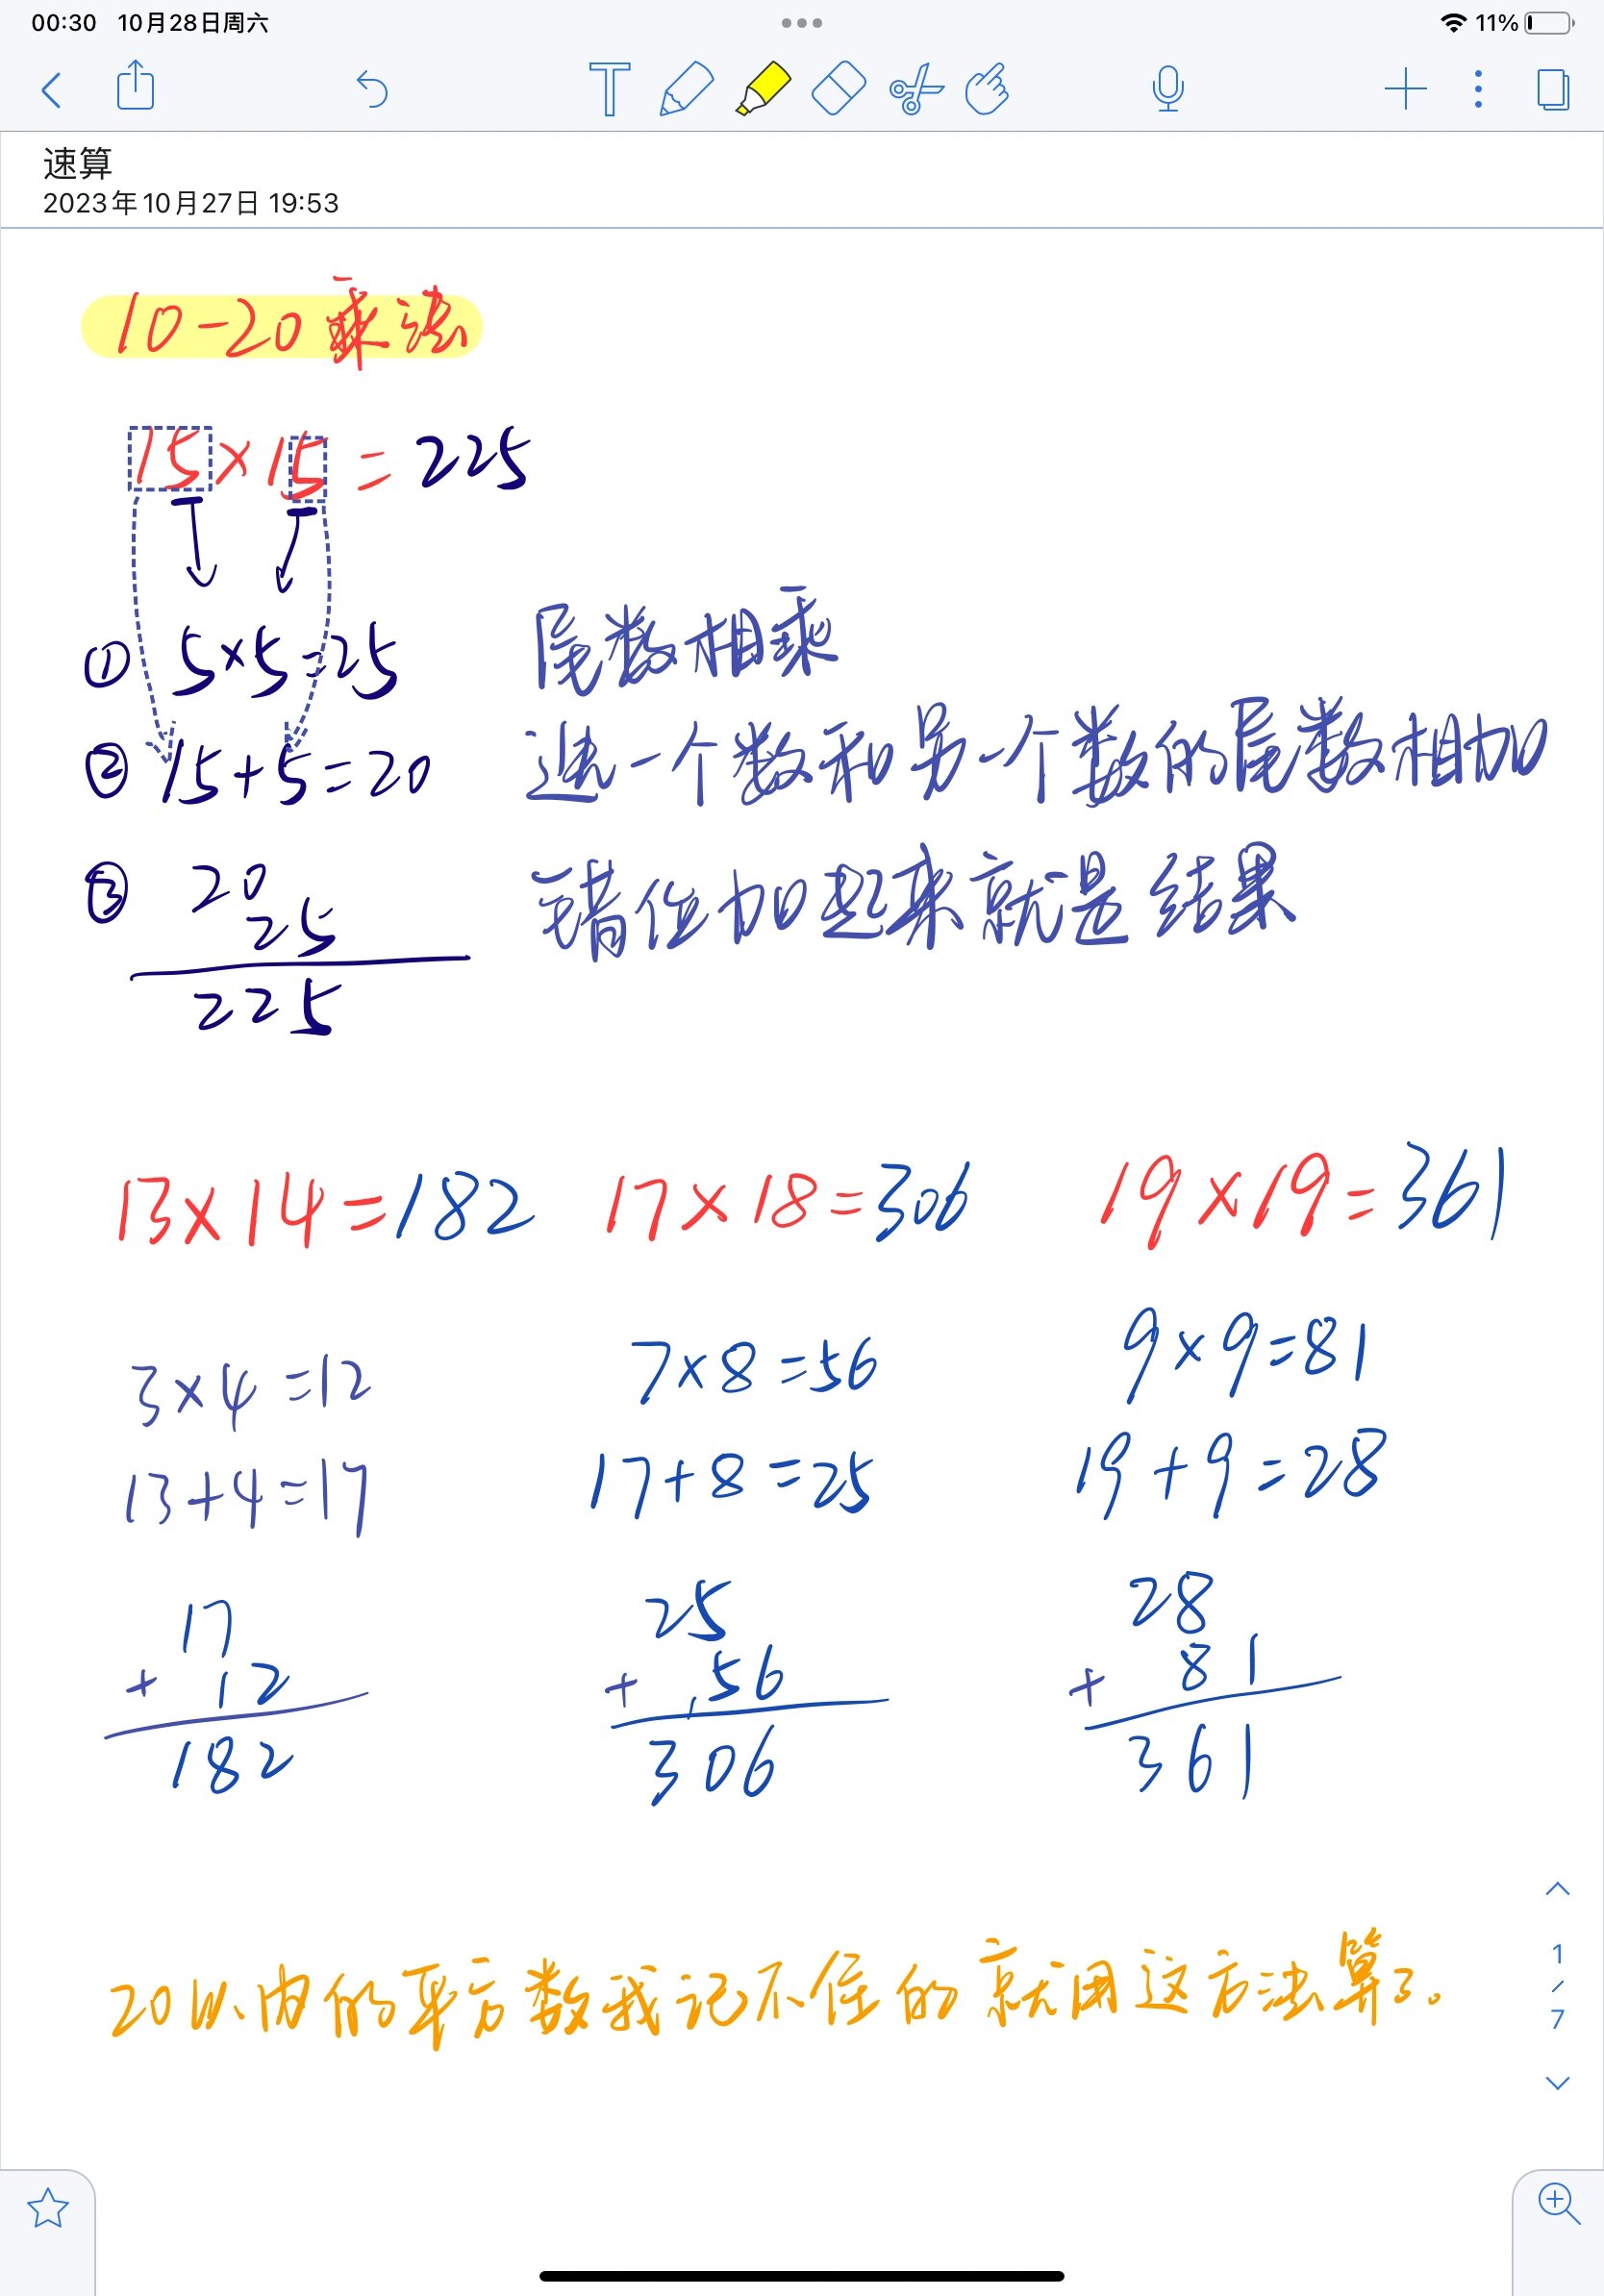 00:30 10月28日周六
11%
速算
2023年10月27日 19:53
10-20乘法
15×15=225
① 5×5=25 尾数相乘
② 15+5=20 选一个数和另一个数的尾数相加
③ 20 错位加起来就是结果
25
225
13×14=182 17×18=306 19×19=361
3×4=12 7×8=56 9×9=81
13+4=17 17+8=25 19+9=28
17 25 28
+ 12 + 56 + 81
182 306 361
20以内的平方数我记不住的就用这方法算了。
1
/
7